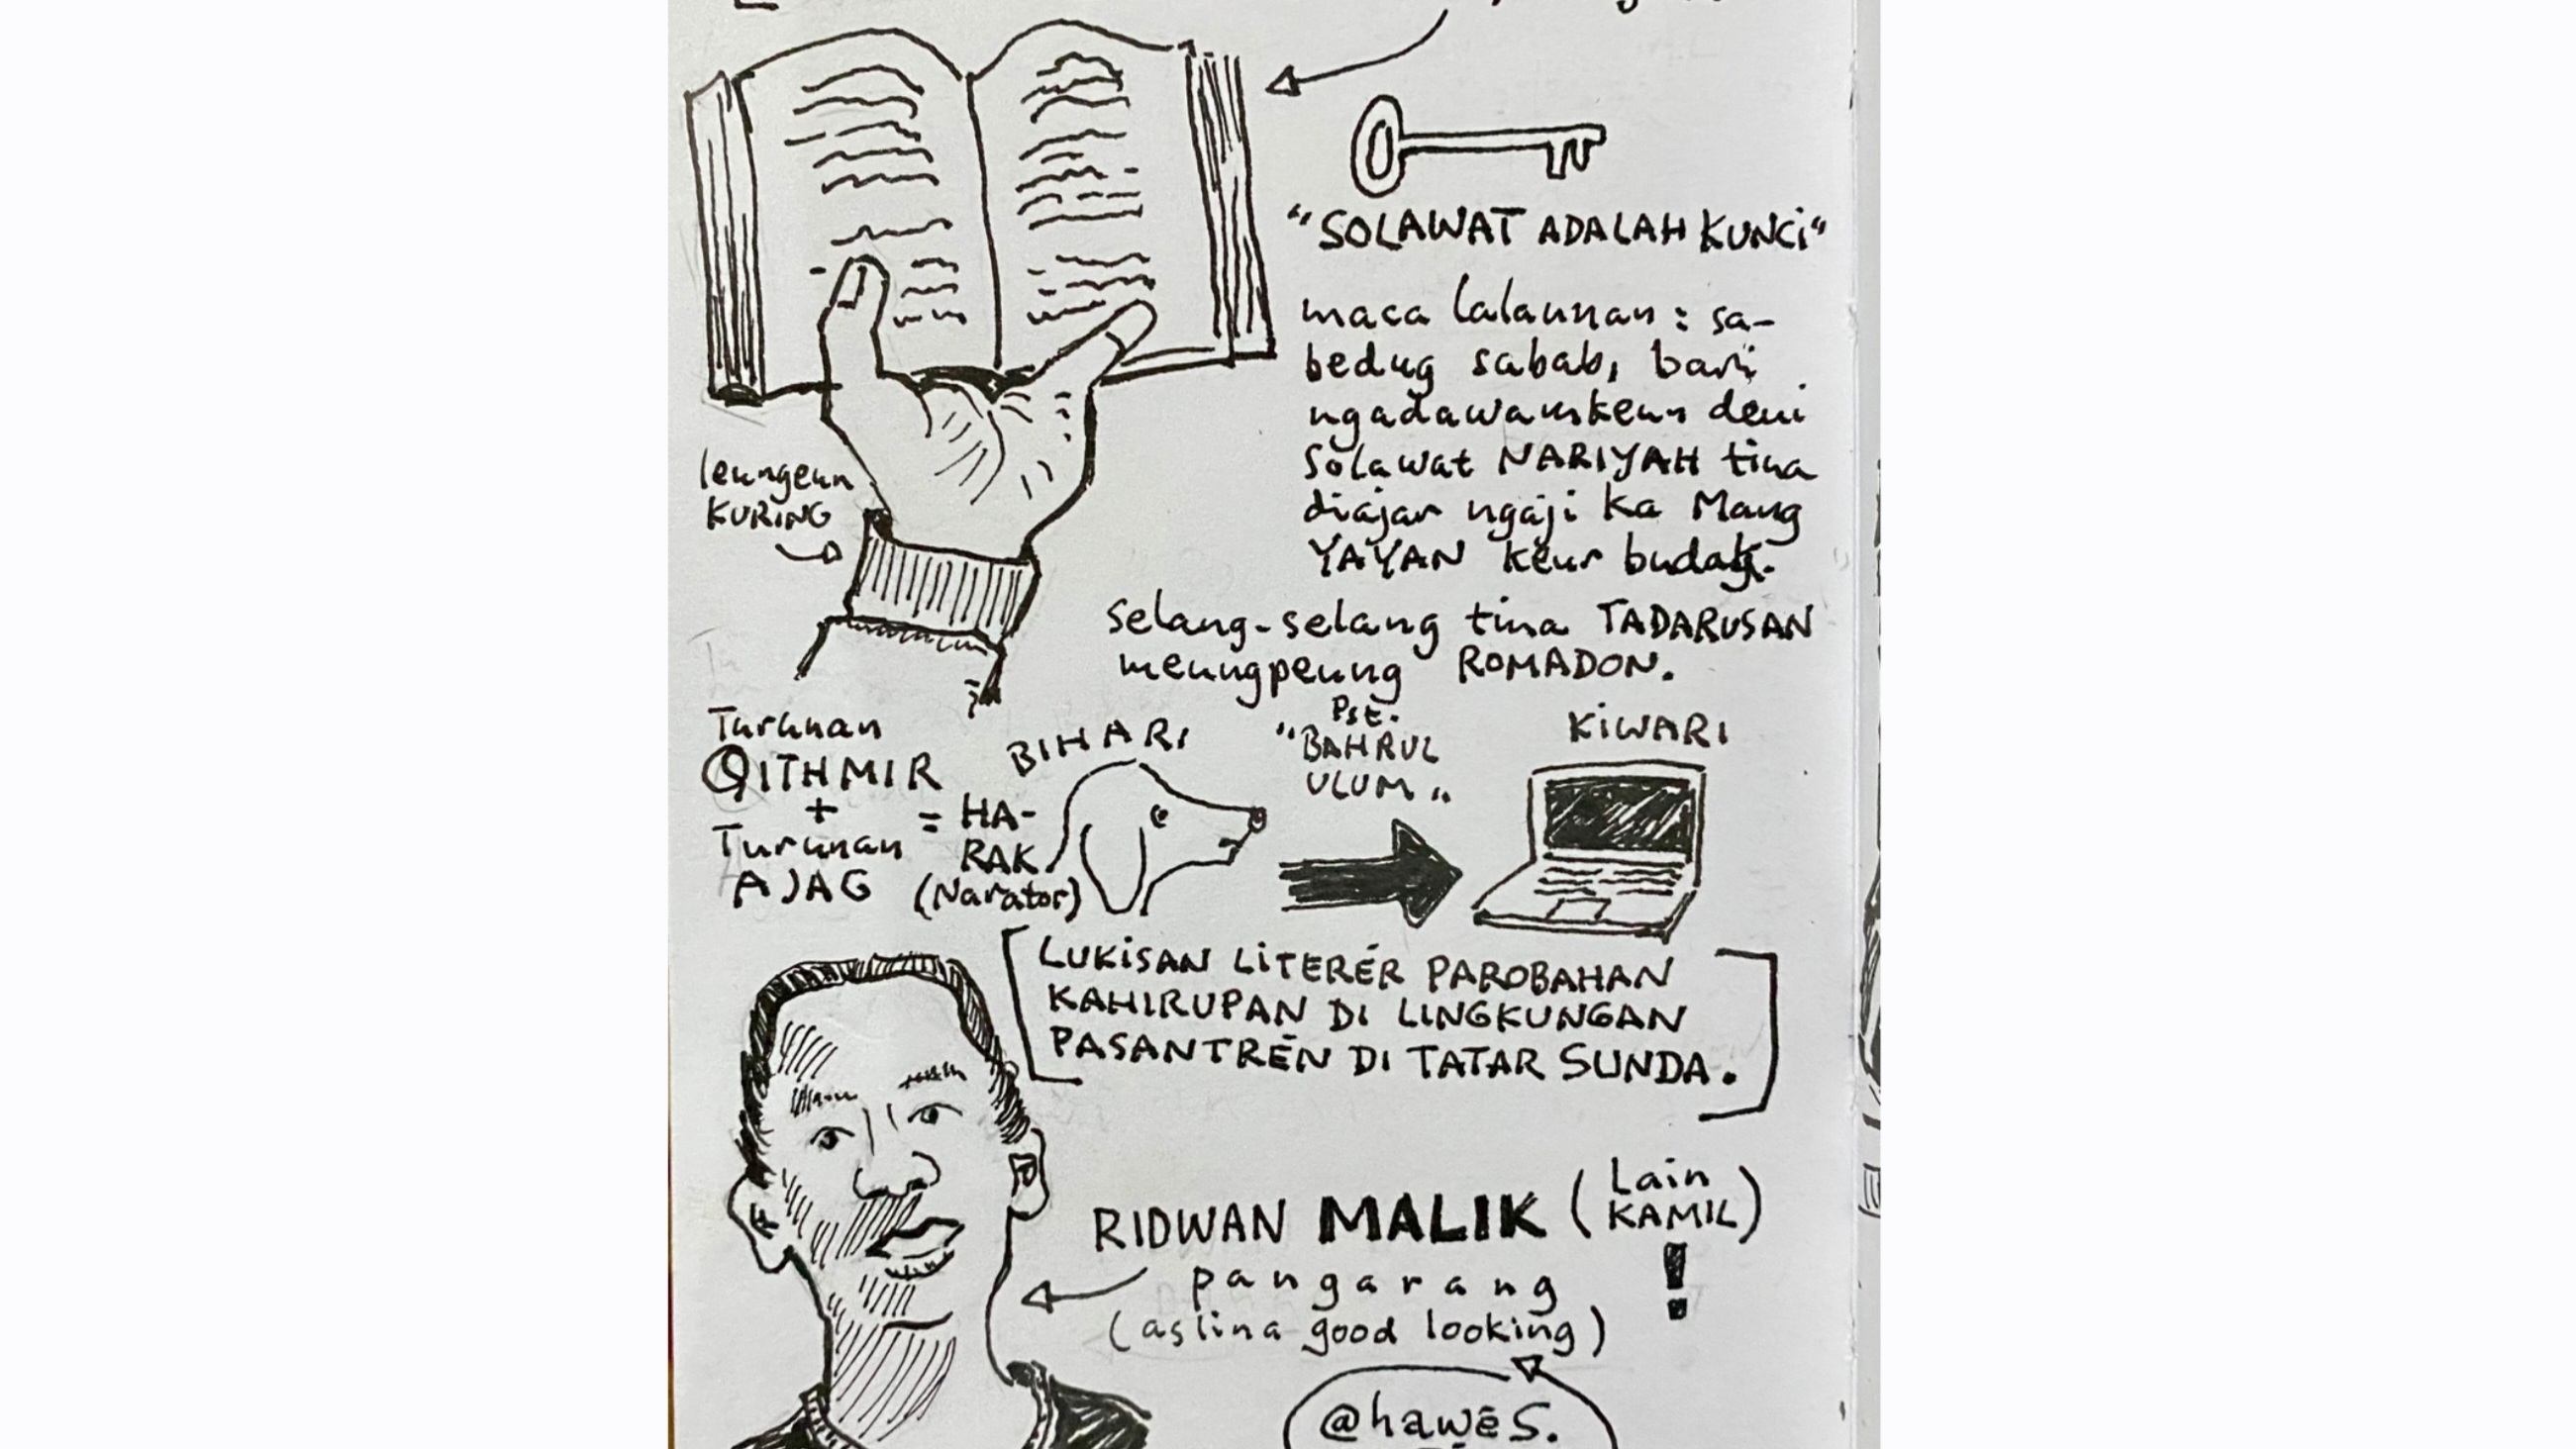 "SOLAWAT ADALAH KUNCI"
maca lalaunan: sa-
bedug sabab, bari
ngadawamkeun deui
solawat NARIYAH tina
diajar ngaji ka Mang
YAYAN keur budak.
selang-selang tina TADARUSAN
meungpeung ROMADON.
leungeun
KURING
Turunan
QITHMIR
+
Turunan
AJAG
= HA-
RAK
(Narator)
BIHARI
Pst.
"BAHRUL
ULUM"
KIWARI
LUKISAN LITERÉR PAROBAHAN
KAHIRUPAN DI LINGKUNGAN
PASANTRÉN DI TATAR SUNDA.
RIDWAN MALIK (Lain
KAMIL)
!
pangarang
(aslina good looking)
@hawēs.